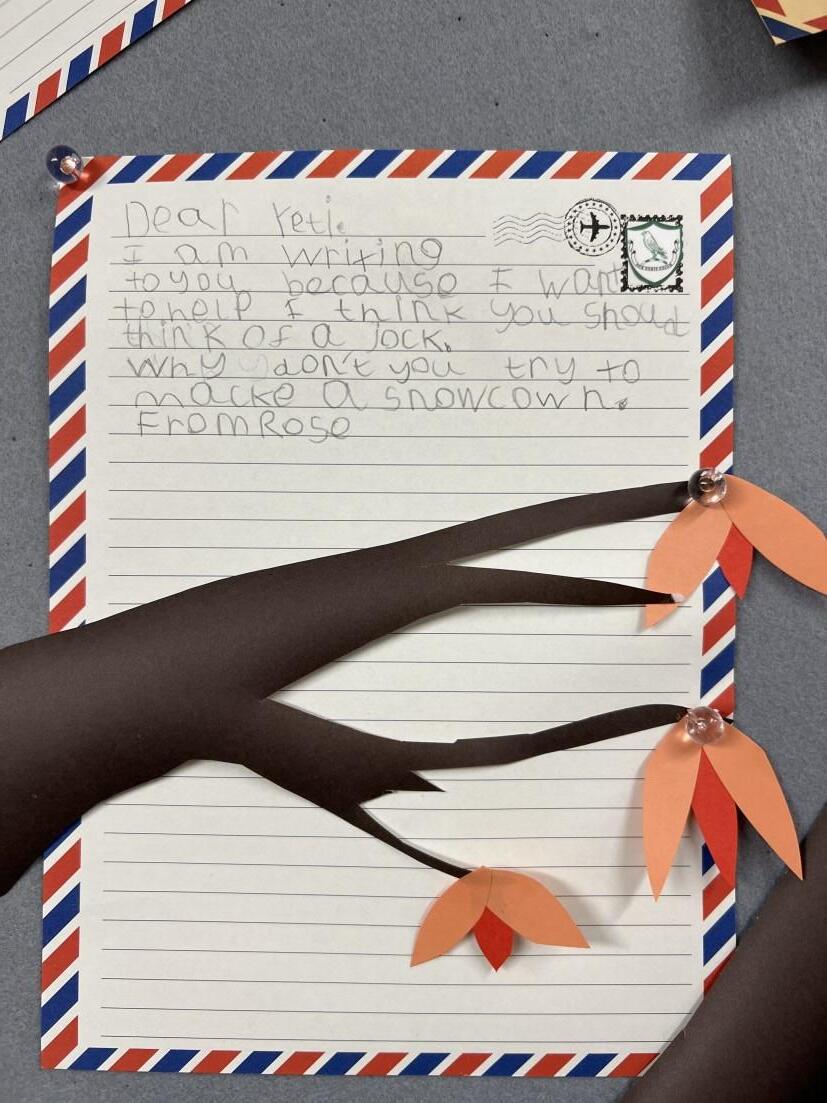 Dear Yeti.
I am writing
to you because I want
to help I think you shoudt
think of a jock.
Why don't you try to
macke a snowcown.
From Rose